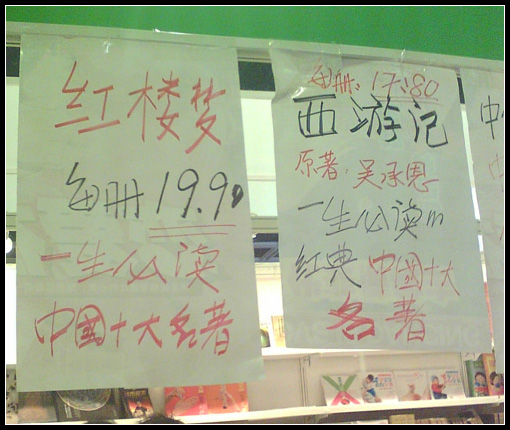 红楼梦
每册19.90
一生必读
中國十大名著
每册:17.80
西游记
原著:吴承恩
一生必读的
经典中國十大
名著
中